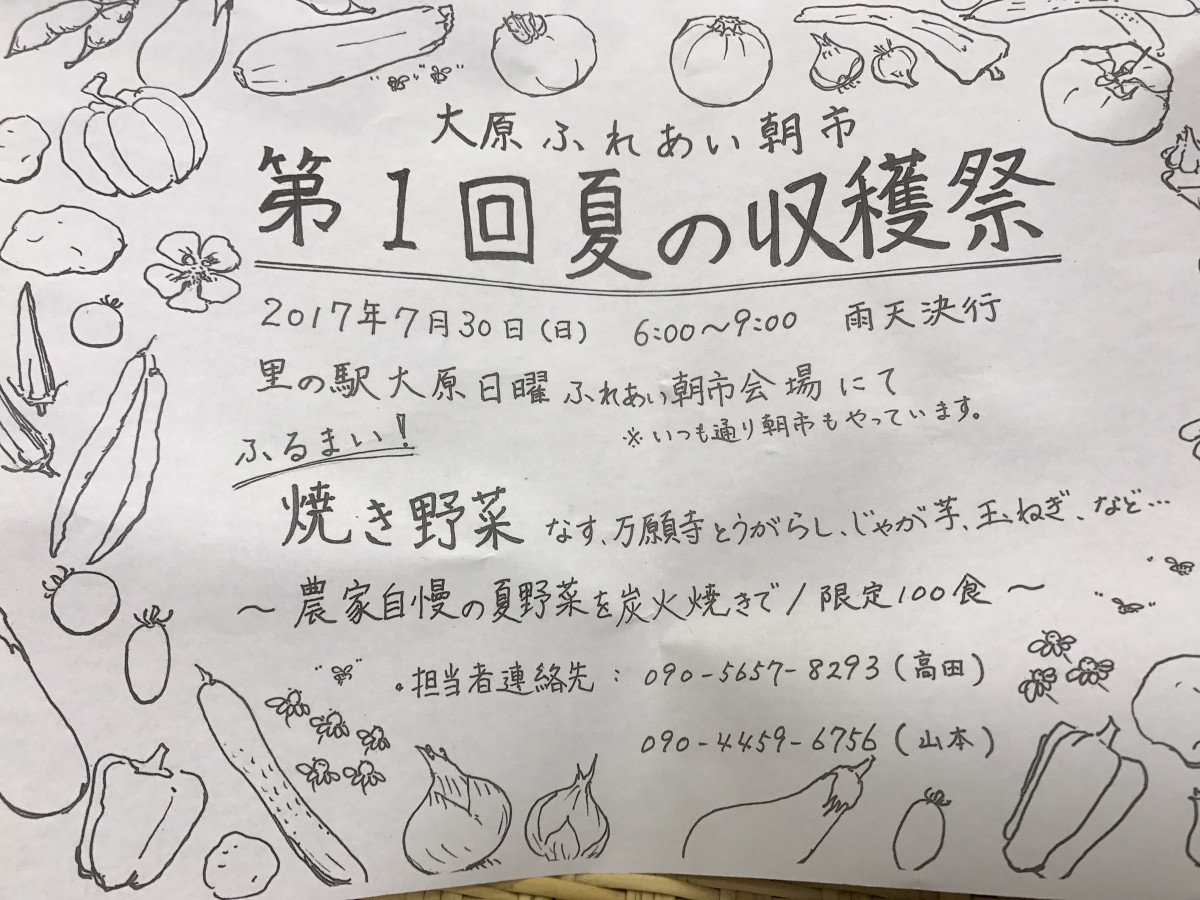 大原ふれあい朝市
第1回夏の収穫祭
2017年7月30日(日) 6:00～9:00 雨天決行
里の駅大原日曜ふれあい朝市会場にて
※いつも通り朝市もやっています。
ふるまい!
焼き野菜 なす、万願寺とうがらし、じゃが芋、玉ねぎ、など…
～農家自慢の夏野菜を炭火焼きで/限定100食～
。担当者連絡先: 090-5657-8293(高田)
090-4459-6756(山本)